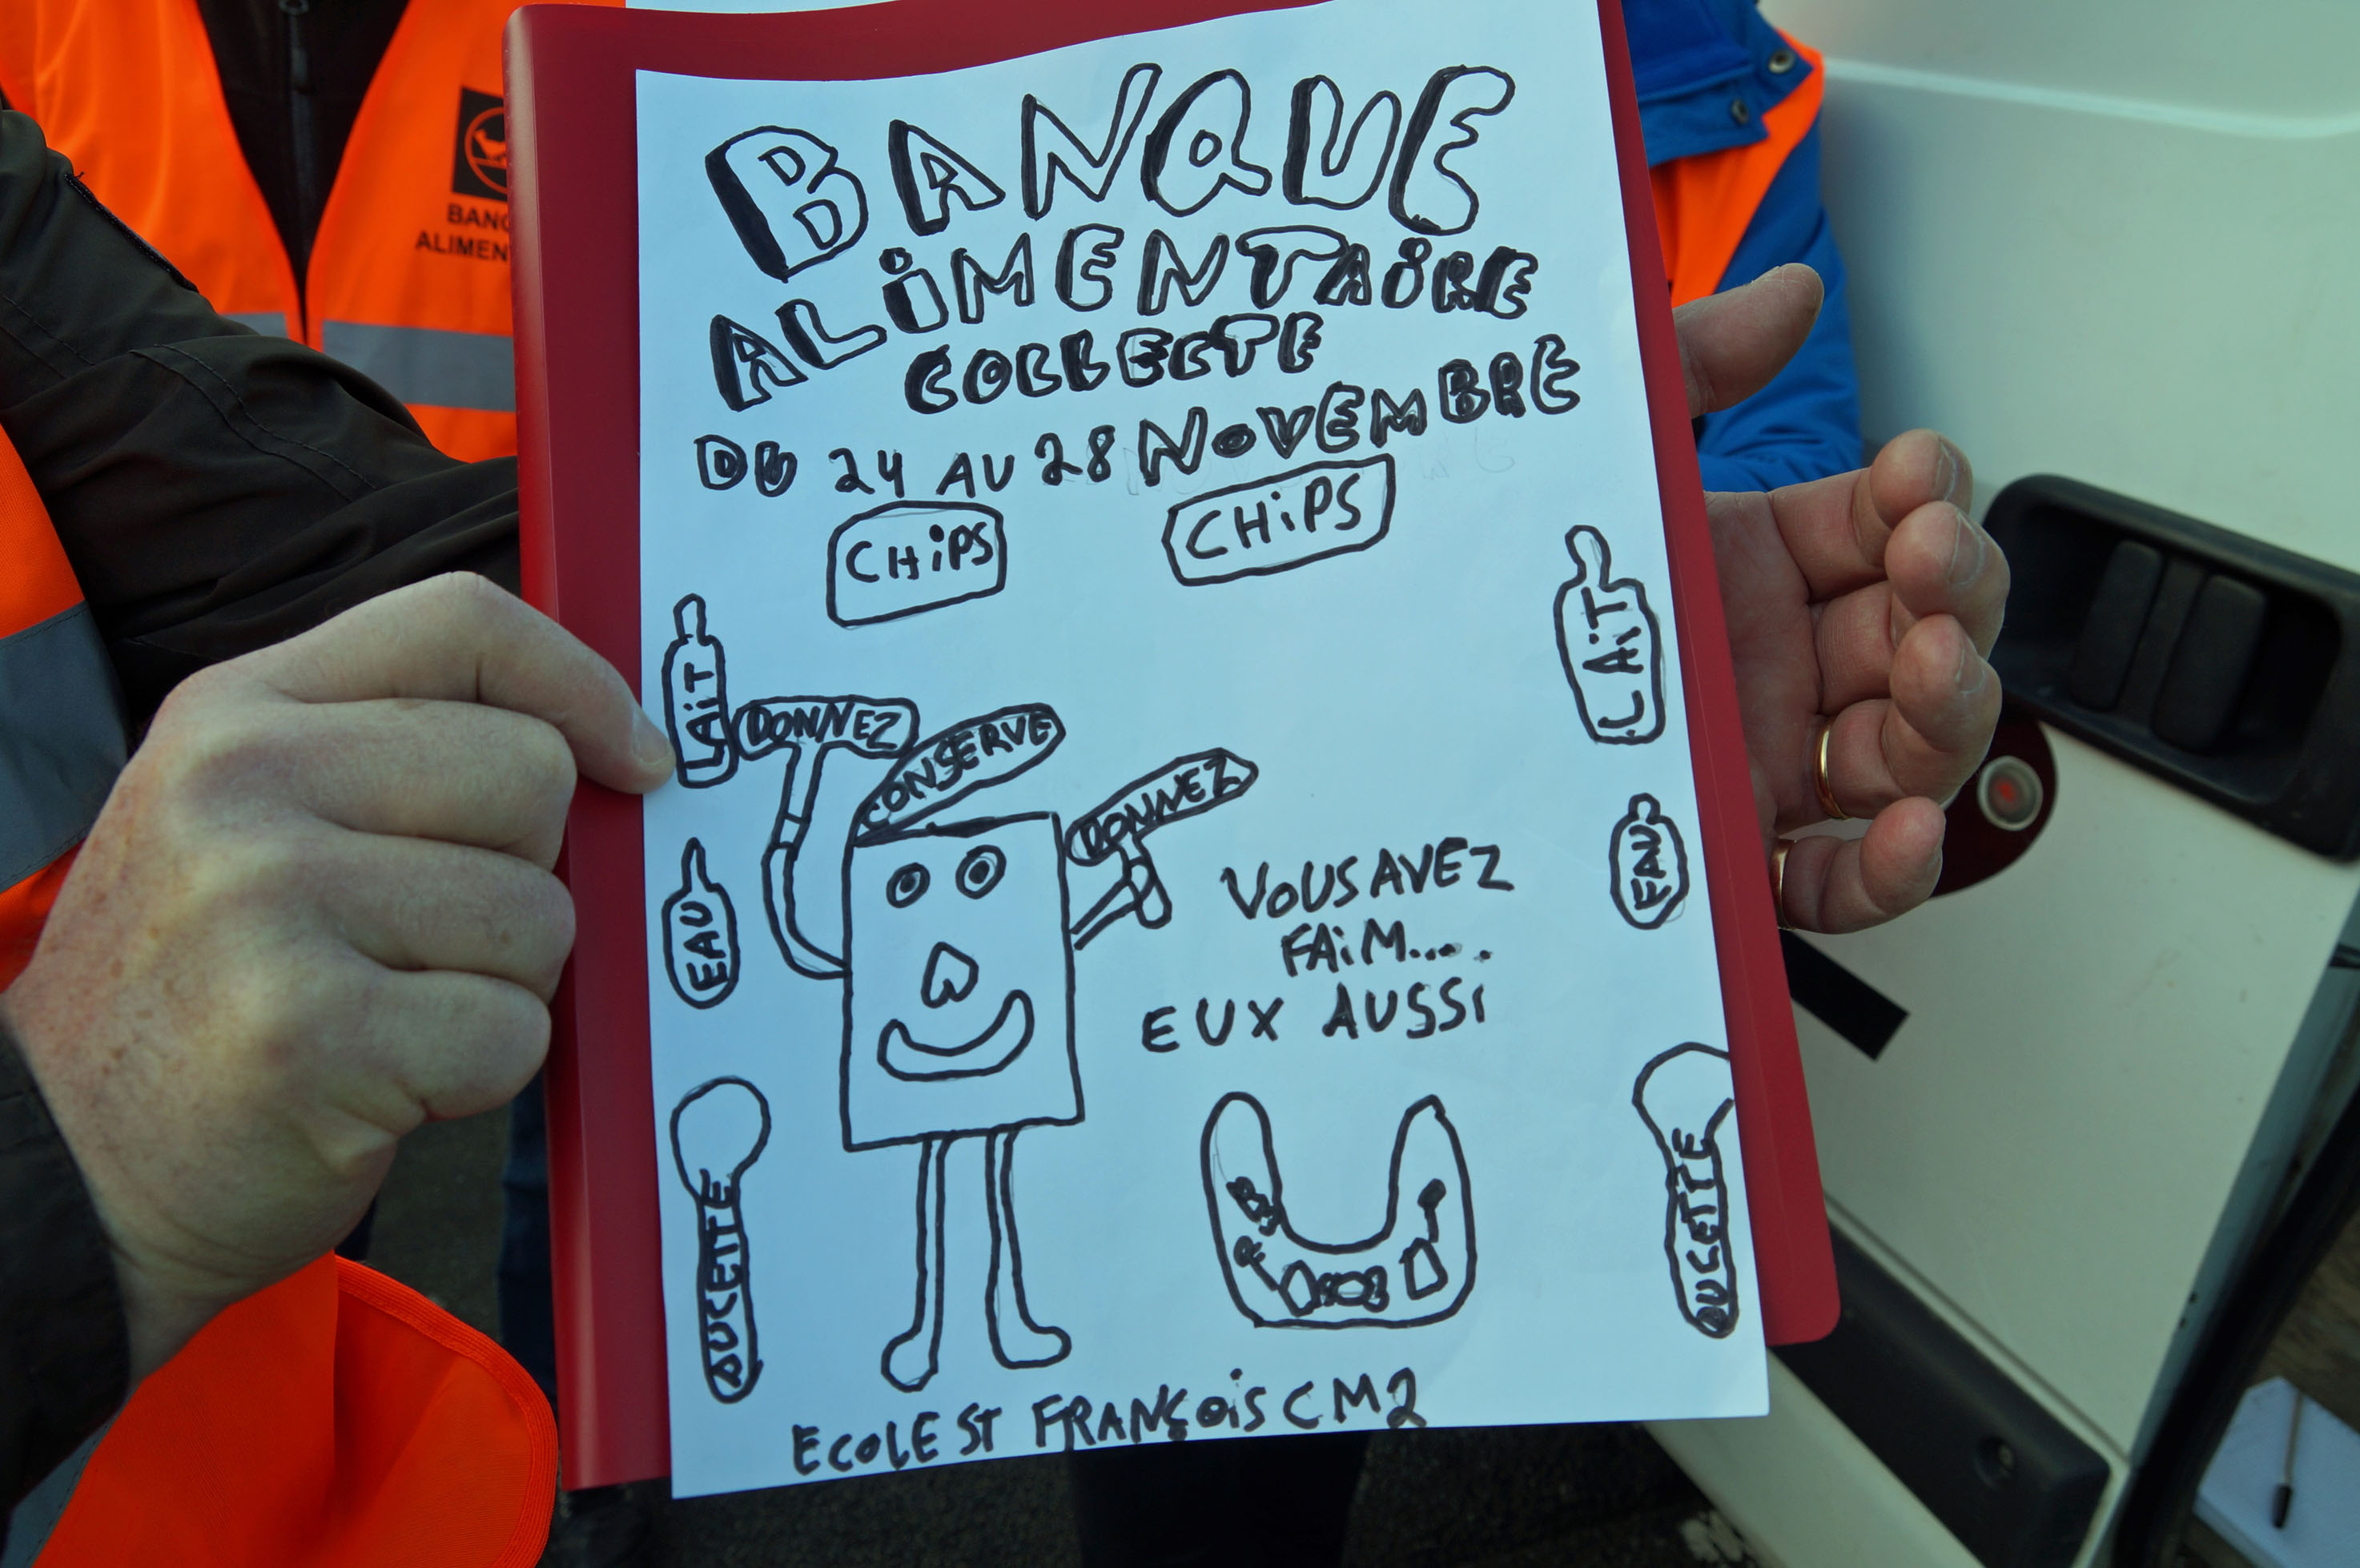 BANQUE
ALiMENTAiRE
COLLECTE
DU 24 AU 28 NOVEMBRE
CHiPS
CHiPS
LAiT
LAiT
DONNEZ
CONSERVE
DONNEZ
EAU
EAU
VOUS AVEZ
FAiM.....
EUX AUSSi
SUCETTE
SUCETTE
ECOLE ST FRANÇOiS CM2